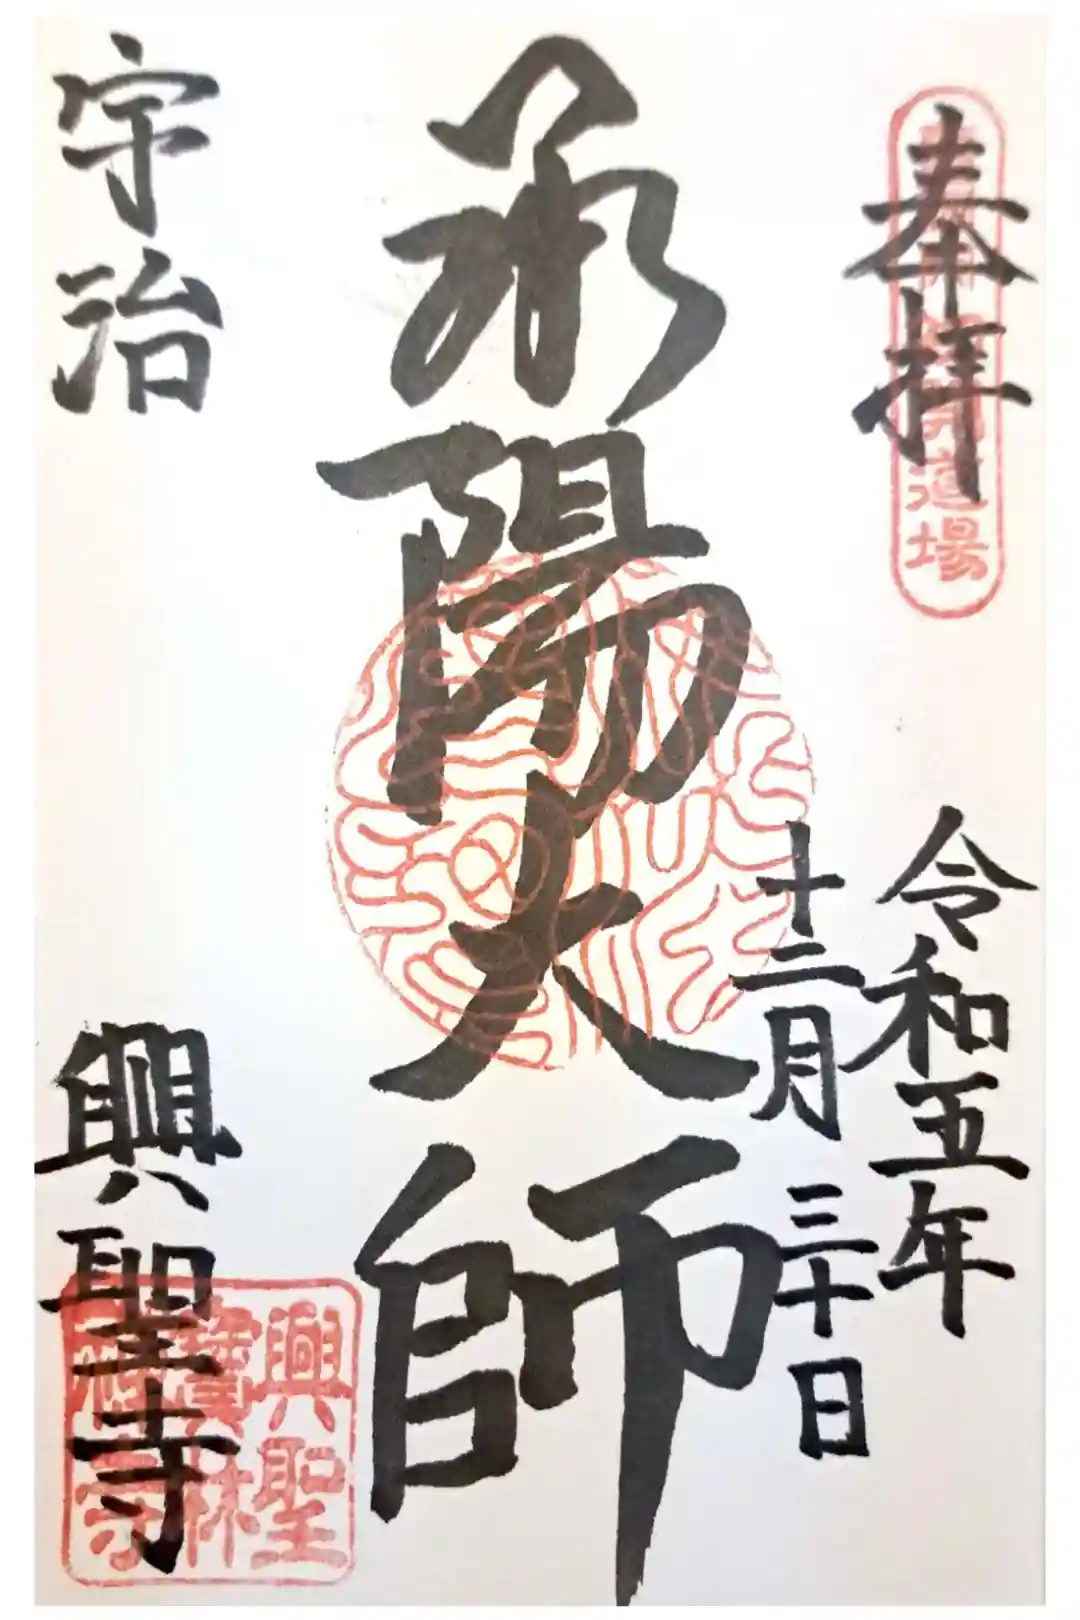 奉拝
道場
令和五年
十二月三十日
承陽大師
宇治
興聖寺
興聖
寶林
禅寺